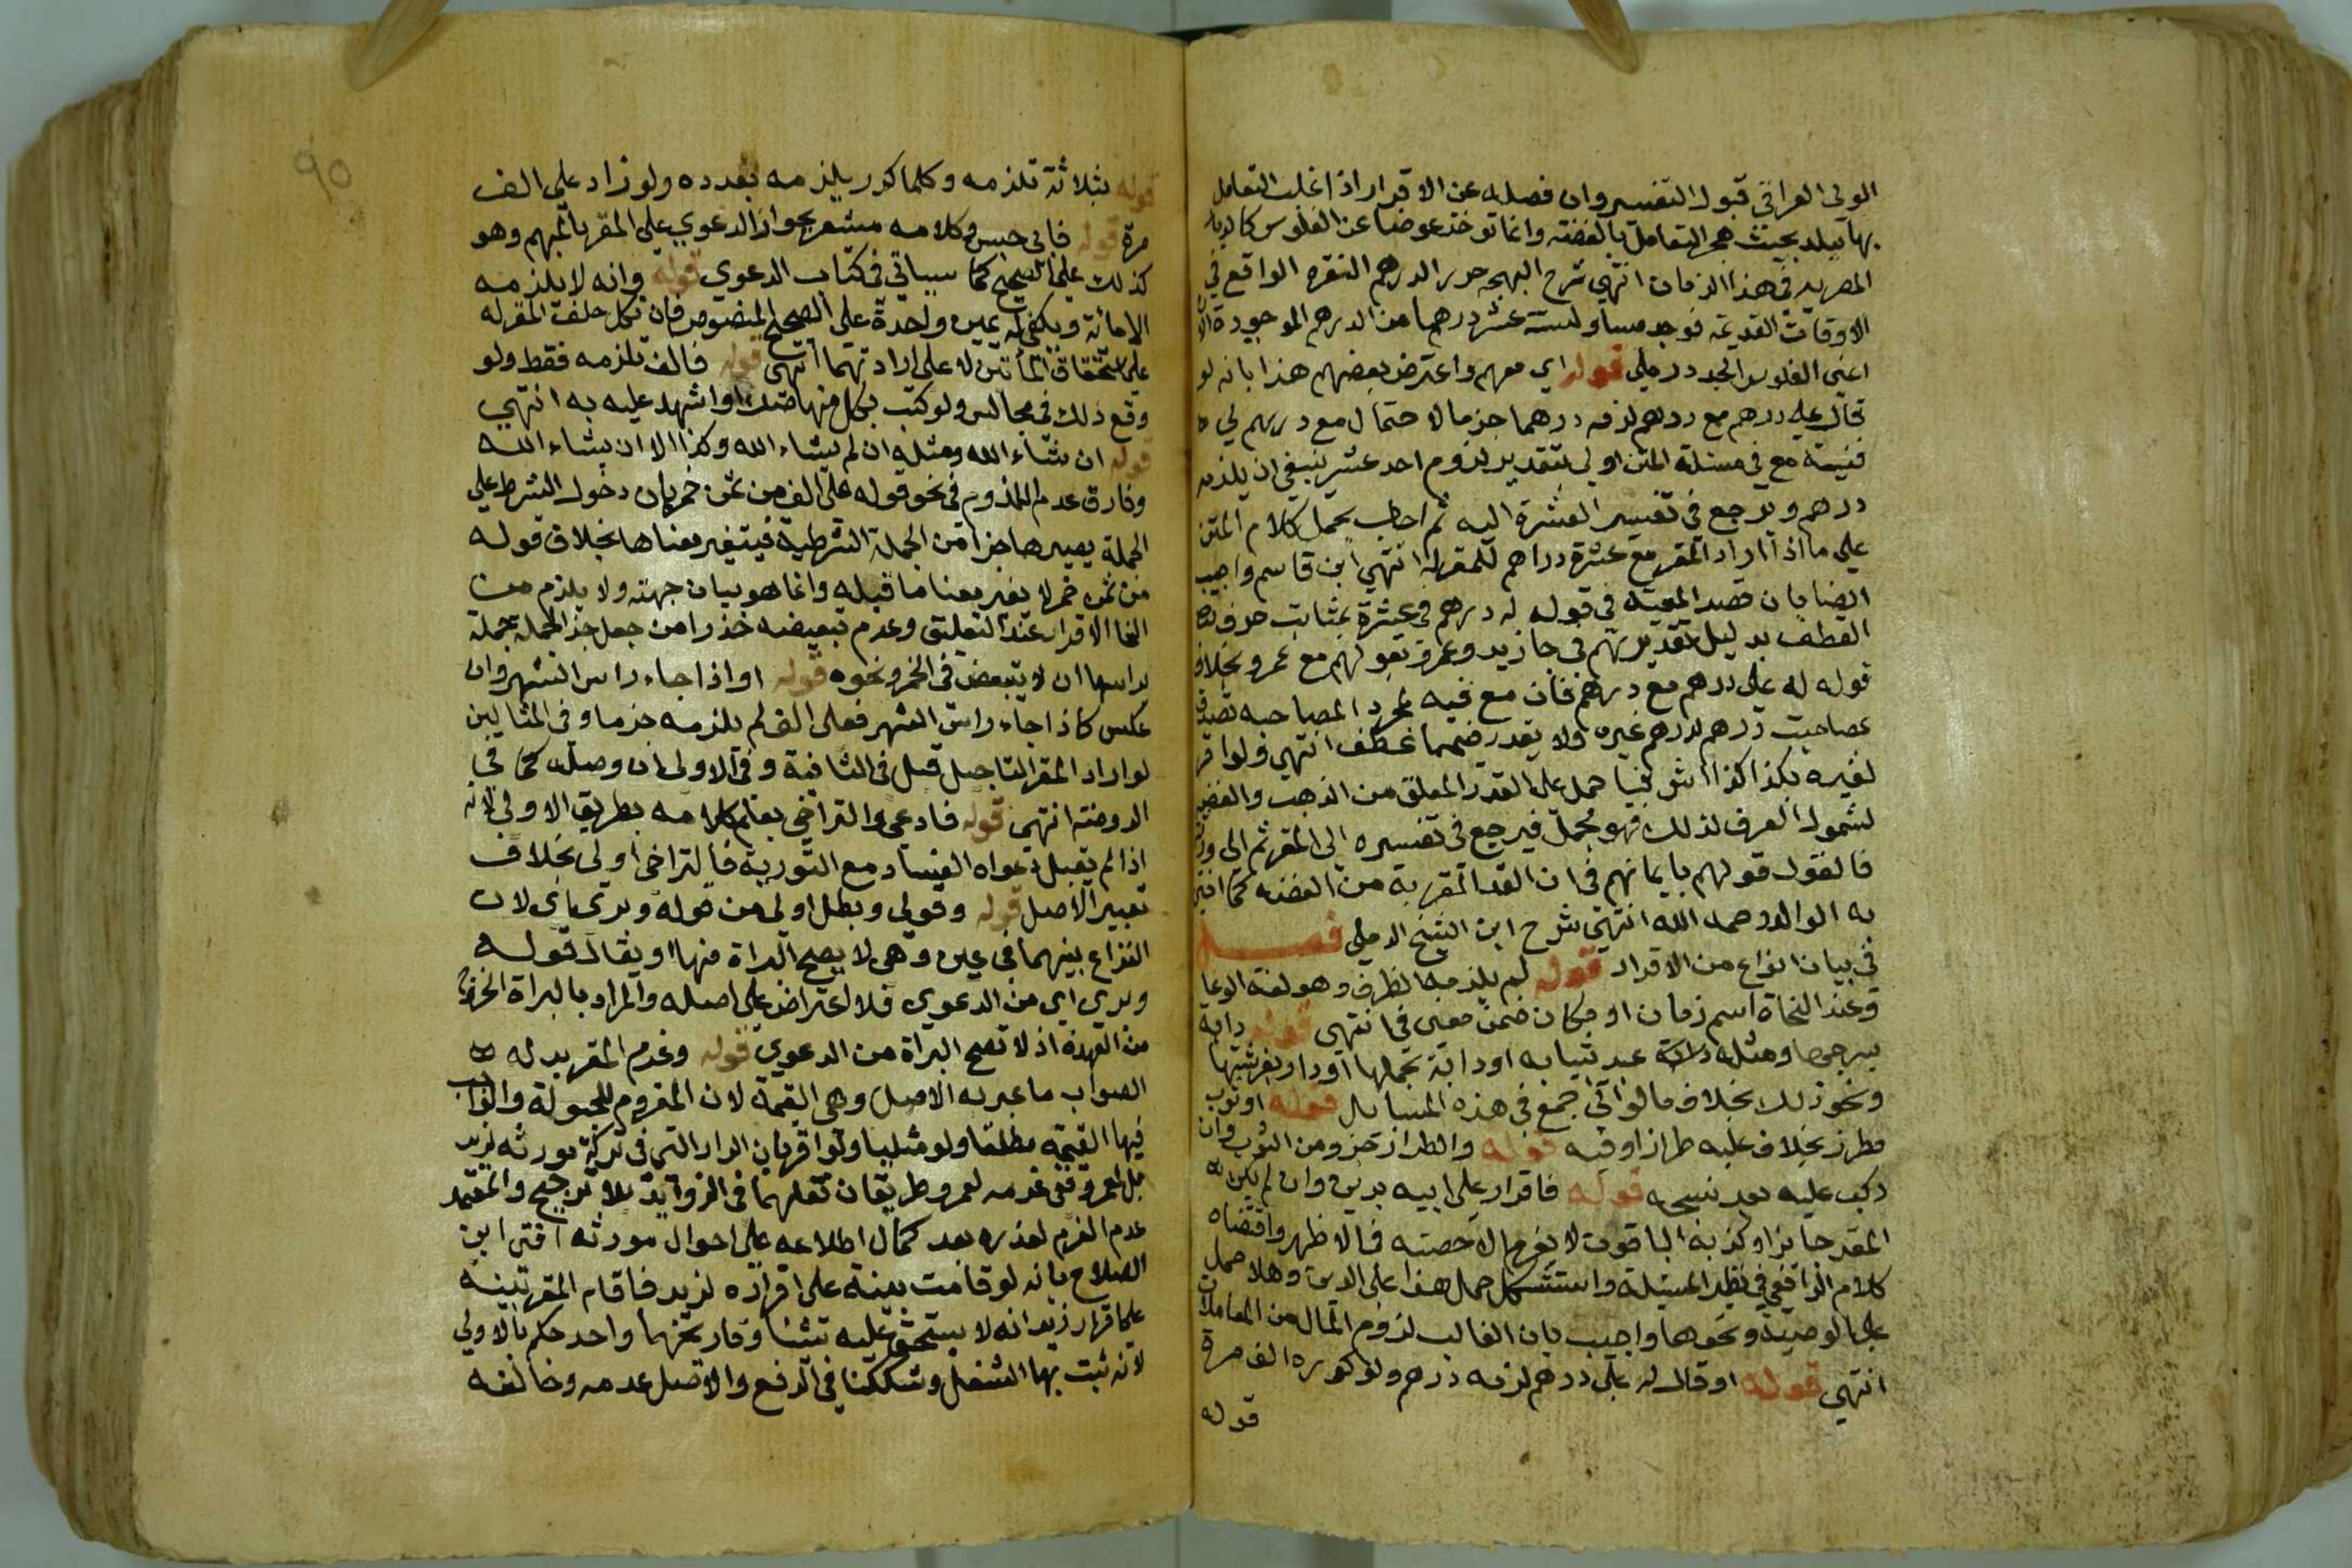 الولي العراقي قبول التفسير وان فصله عن الاقرار اذا غلب التعامل
بها ببلد بحيث هجر التعامل بالفضة وانما توخذ عوضا عن الفلوس كالديار
المصرية في هذا الزمان انتهي شرح البهجه حرر الدرهم النقره الواقع في
الاوقات القديمة فوجد مساو لستة عشر درهما من الدرهم الموجودة الان
اعني الفلوس الجدد رملي قوله اي معهم واعترض بعضهم هذا بانه لو
قال علي درهم مع درهم لزمه درهما جزما لاحتمال مع درهم لي
فنية مع في مسئلة المتن اولي بتقدير لزوم احد عشر ينبغي ان يلزمه
درهم ويرجع في تفسير العشرة اليه ثم اجاب بحمل كلام المتن
علي ما اذا اراد المقر مع عشرة دراهم للمقر له انتهي ابن قاسم واجيب
ايضا بان قصد المعية في قوله له درهم في عشرة بمثابت حرف
العطف بدليل تقديرهم في جا زيد وعمرو بقولهم مع عمرو بخلاف
قوله له علي درهم مع درهم فان مع فيه لمجرد المصاحبه تصدق
بمصاحبت درهم لدرهم غيره ولا يقدر فيهما عطف انتهي ولو اقر
لغيره بكذا كذا اشرفيا حمل علي القدر المعلق من الذهب والفضه
لشمول العرف لذلك فهو مجمل فيرجع في تفسيره الي المقر ثم الي
فالقول قولهم بايمانهم في ان القد المقر به من الفضه كما افتي
به الوالد رحمه الله انتهي شرح ابن الشيخ الرملي فصل
في بيان انواع من الاقرار قوله لم يلزمه الظرف وهو لغة الوعا
وعند النحاة اسم زمان او مكان ضمن معني في انتهي قوله دابة
بسرجها ومثله عبد ثيابه او دابة بحملها او دار بفرشيها
ونحو ذلك بخلاف ما لو اتي جمع في هذه المسايل قوله او ثوب
مطرز بخلاف عليه طراز او فيه قوله والطراز جزو من الثوب وان
ركب عليه بعد نسجه قوله فاقرار علي ابيه بدين وان لم يكن
المقر حايزا وكذبه الباقون لا يغرم الا حصته في الاظهر واقتضاه
كلام الرافعي في نظير المسئلة واستشكل حمل هذا علي الدين وهلا حمل
علي الوصية ونحوها واجيب بان الغالب لزوم المال من المعاملات
انتهي قوله او قال له علي درهم لزمه درهم ولو كرره الف مرة
قوله
قوله بثلاثة تلزمه وكلما كرر يلزمه بعدده ولو زاد علي الف
مرة قوله فاني حبس وكلامه مشعر بجواز الدعوي علي المقر بالمبهم وهو
كذلك علي الصحيح كما سياتي في كتاب الدعوي قوله وانه لا يلزمه
الا مائة ويكفي له يمين واحدة علي الصحيح المنصوص فان نكل حلف المقر له
علي استحقاق المأتين لا علي ارادتهما انتهي قوله فالف تلزمه فقط ولو
وقع ذلك في مجالس ولو كتب بكل منها صك او اشهد عليه به انتهي
قوله ان شاء الله ومثله ان لم يشاء الله وكذا الا ان يشاء الله
وفارق عدم اللزوم في نحو قوله علي الف من ثمن خمر بان دخول الشرط علي
الجملة يصيرها جزأ من الجملة الشرطية فيتغير معناها بخلاف قوله
من ثمن خمر لا يغير معنا ما قبله وانما هو بيان جهته ولا يلزم من
الغا الاقرار عند التعليق وعدم تبعيضه حذرا من جعل جز الجملة جملة
براسها ان لا يتبعض في الخمر ونحوه قوله او اذا جاء راس الشهر وان
عكس كاذا جاء راس الشهر فعلي الف لم يلزمه جزما وفي المثالين
لو اراد المقر التاجيل قبل في الثانية وفي الاولي ان وصله كما في
الروضة انتهي قوله فادعي والتراخي يعلم كلامه بطريق الاولي لانه
اذا لم تقبل دعواه الفساد مع التورية فالتراخي اولي بخلاف
تعبير الاصل قوله وقولي وبطل اولي من قوله وبري باي لان
النزاع بينهما في عين وهي لا يصح البراة منها او يقال قوله
وبري اي من الدعوي فلا اعتراض علي اصله والمراد بالبراة الخروج
من العهدة اذ لا تصح البراة من الدعوي قوله وغرم المقر بدله
الصواب ما عبر به الاصل وهي القيمة لان المغروم للحيولة والواجب
فيها القيمة مطلقا ولو مثليا ولو اقر بان الدار التي في تركة مورثه لزيد
بل لعمرو ففي غرمه لعمرو طريقان نقلهما في الزوايد بلا ترجيح والمعتمد
عدم الغرم لعذره بعد كمال اطلاعه علي احوال مورثه افتي ابن
الصلاح بانه لو قامت بينة علي اقراره لزيد فاقام المقر بينة
علي اقرار زيد انه لا يستحق عليه شئا وتاريخهما واحد حكم بالاولي
لانه ثبت بها الشغل وشككنا في الرفع والاصل عدمه وخالفه